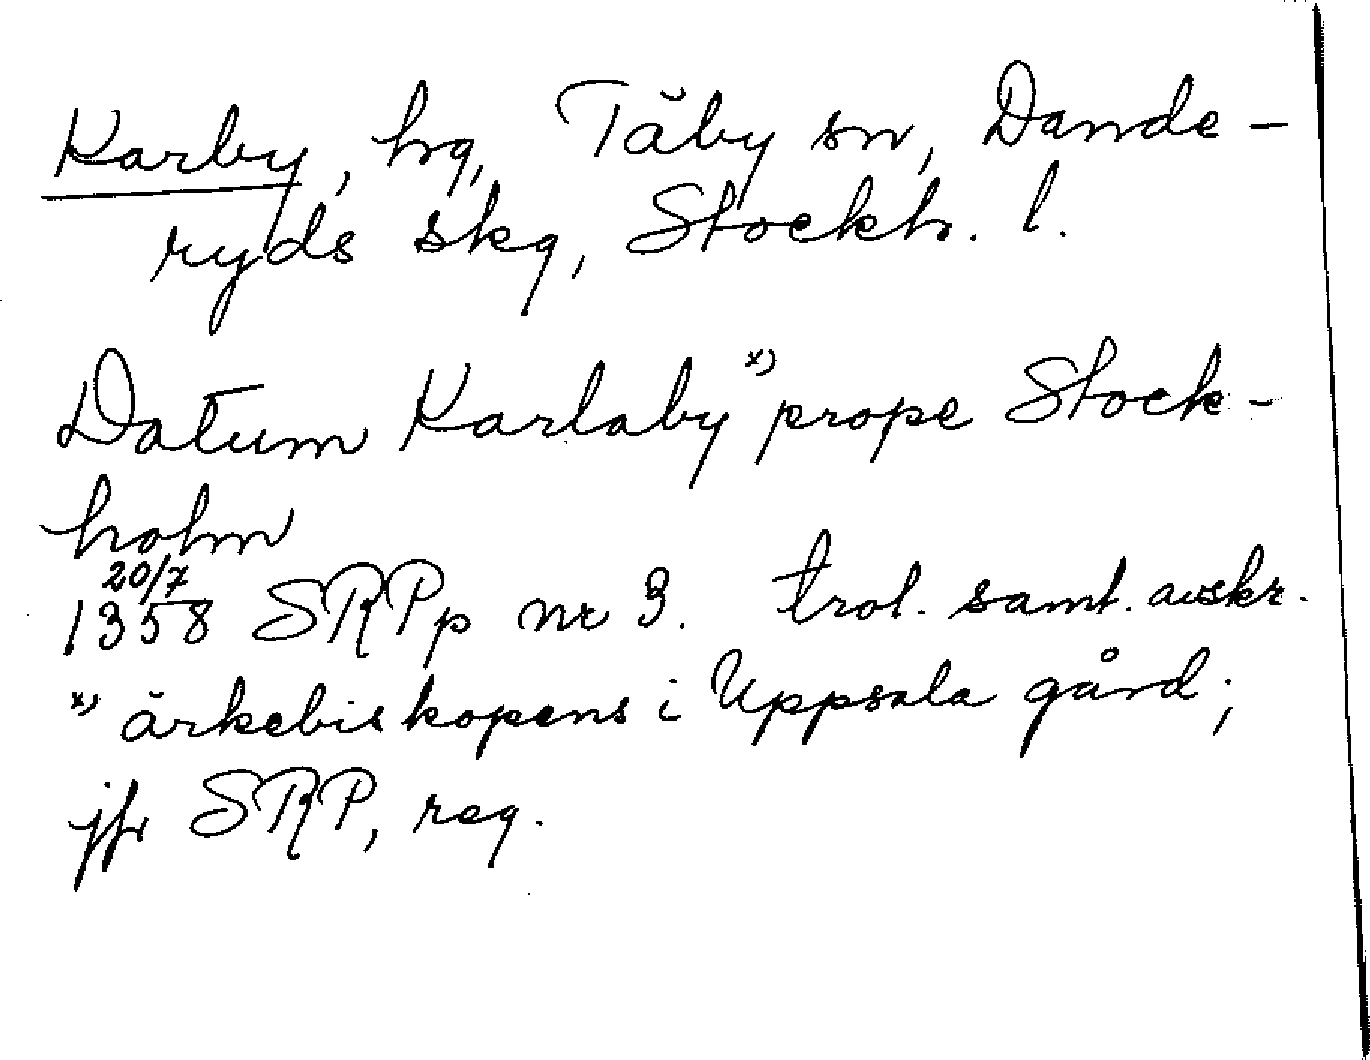 Karby, hg, Täby sn, Dande-
ryds skg, Stockh. l.
Datum Karlaby x) prope Stock-
holm
20/7
1358 SRPp nr 3. trol. samt. avskr.
x) ärkebiskopens i Uppsala gård;
jfr SRP, reg.